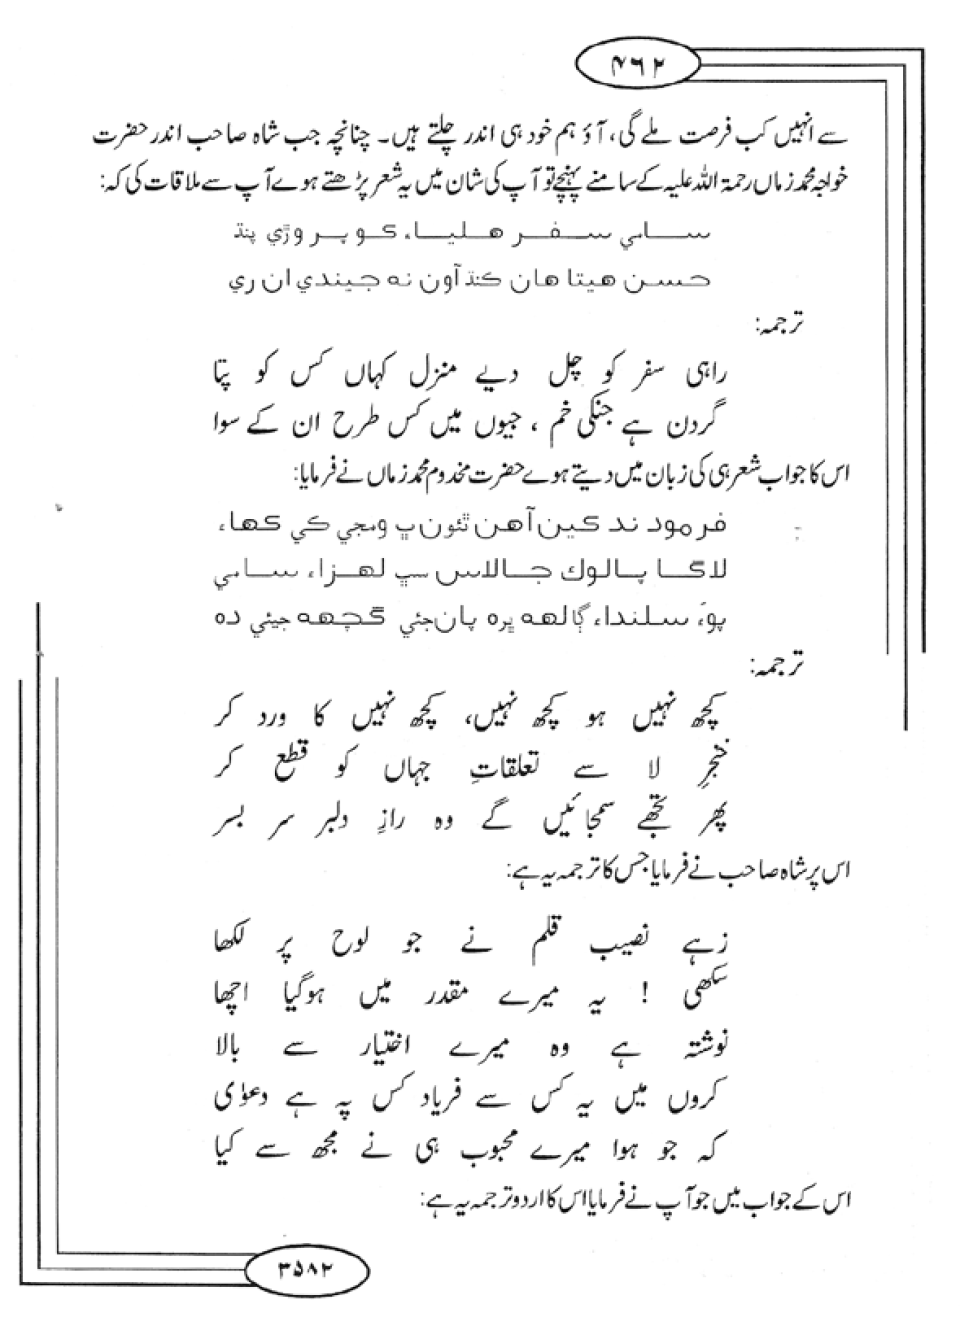 ۴۶۲
سے انہیں کب فرصت ملے گی، آؤ ہم خود ہی اندر چلتے ہیں۔ چنانچہ جب شاہ صاحب اندر حضرت
خواجہ محمد زماں رحمۃ اللہ علیہ کے سامنے پہنچے تو آپ کی شان میں یہ شعر پڑھتے ہوے آپ سے ملاقات کی کہ:
سامي سفر هليا، ڪو پروڙي پنڌ
حسن هيتا هان ڪنڌ آون نه جيندي ان ري
ترجمہ:
راہی سفر کو چل دیے منزل کہاں کس کو پتا
گردن ہے جنکی خم ، جیوں میں کس طرح ان کے سوا
اس کا جواب شعر ہی کی زبان میں دیتے ہوے حضرت مخدوم محمد زماں نے فرمایا:
فرمود ند ڪين آهن ٿئون ۾ ومجي ڪي ڪها،
لاڳا پالوڪ جالاس سڀ لهزا، سامي
پوءِ سلندا، ڳالهه پره پان جئي ڳجهه جيئي ده
ترجمہ:
کچھ نہیں ہو کچھ نہیں، کچھ نہیں کا ورد کر
خنجرِ لا سے تعلقاتِ جہاں کو قطع کر
پھر تجھے سمجائیں گے وہ رازِ دلبر سر بسر
اس پر شاہ صاحب نے فرمایا جس کا ترجمہ یہ ہے:
زہے نصیب قلم نے جو لوح پر لکھا
سکھی ! یہ میرے مقدر میں ہوگیا اچھا
نوشتہ ہے وہ میرے اختیار سے بالا
کروں میں یہ کس سے فریاد کس پہ ہے دعوٰی
کہ جو ہوا میرے محبوب ہی نے مجھ سے کیا
اس کے جواب میں جو آپ نے فرمایا اس کا اردو ترجمہ یہ ہے:
۳۵۸۲